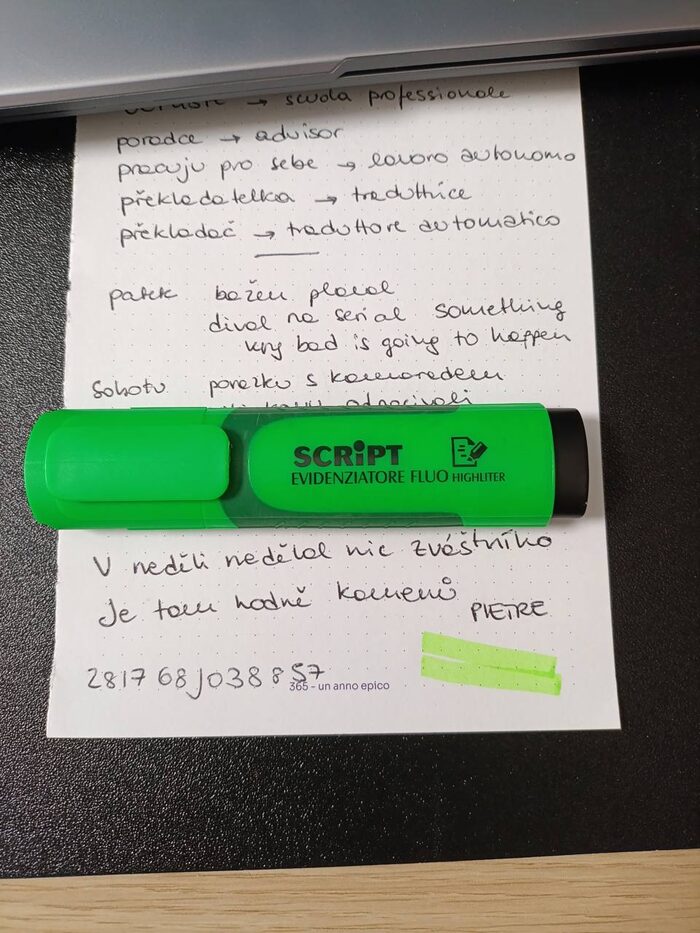 → scuola professionale
poradce → advisor
pracuju pro sebe → lavoro autonomo
překladatelka → traduttrice
překladač → traduttore automatico
patek bažen plaval
dival na serial something
very bad is going to happen
Sobotu porazku s kamaradem
SCRiPT
EVIDENZIATORE FLUO HIGHLITER
V neděli nedělal nic zváštního
Je tam hodně kamenů
PIETRE
2817 68J0388 57
365 - un anno epico